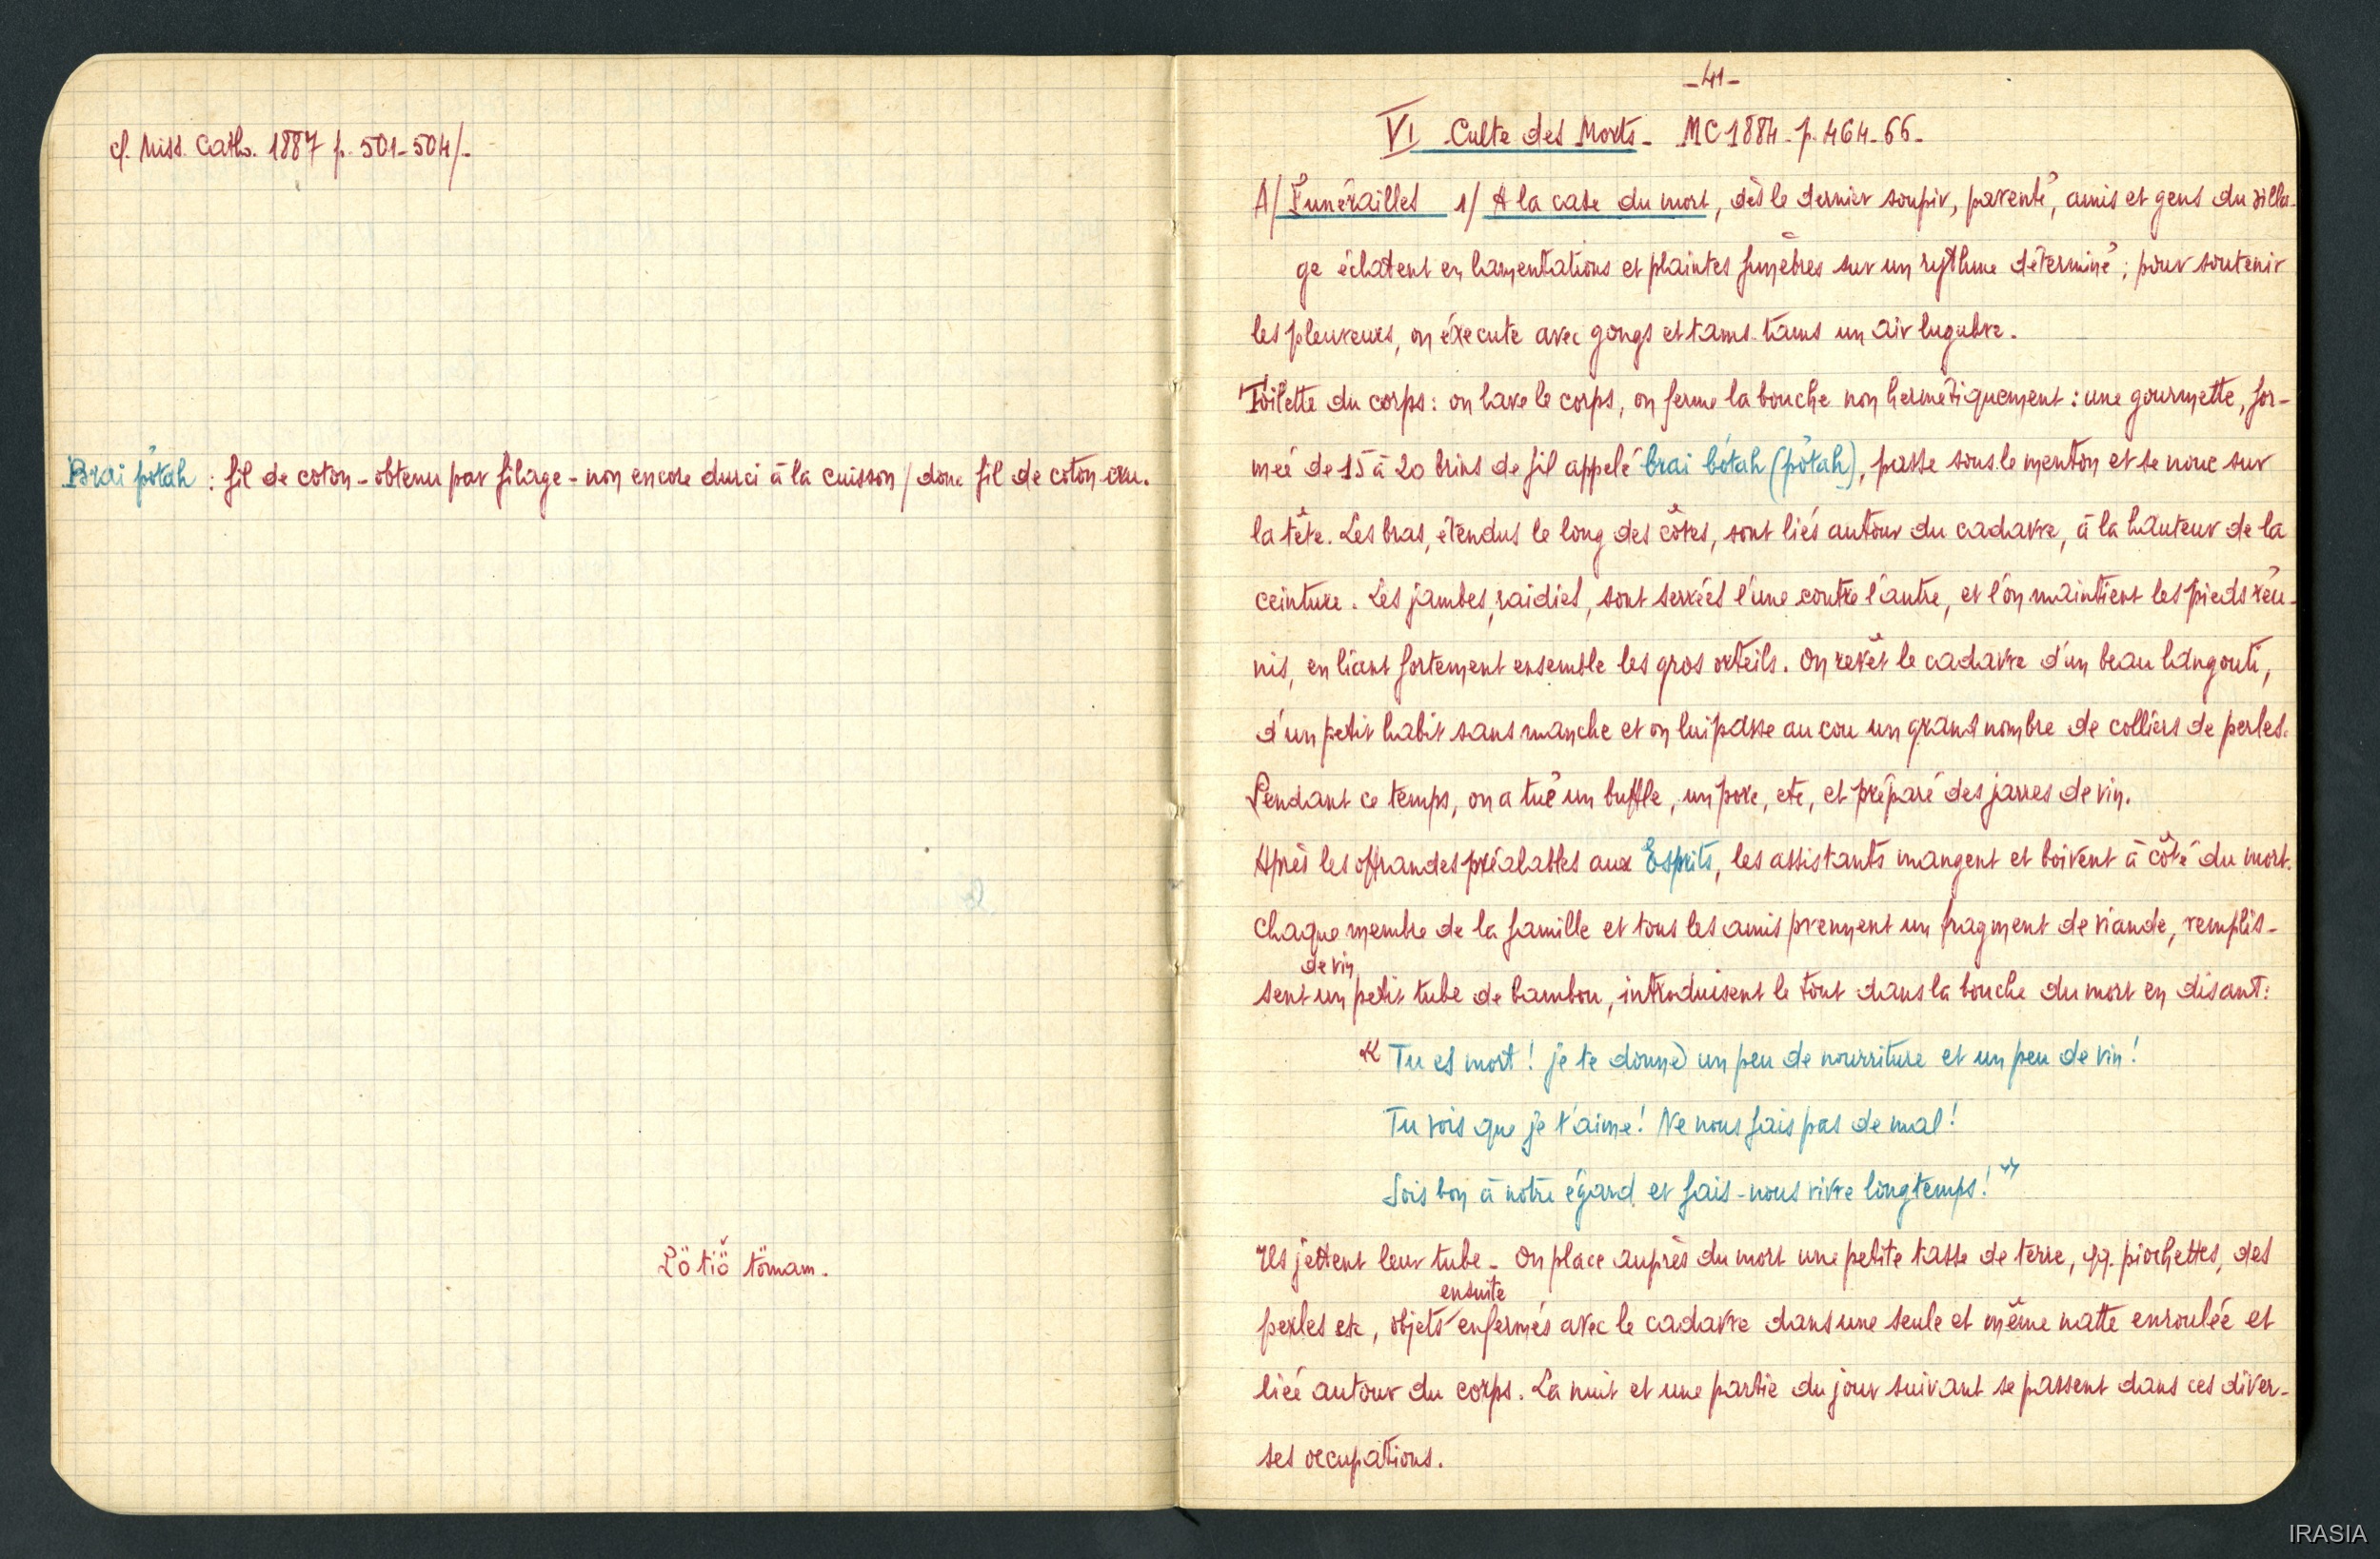 cf. Miss. Cath. 1887 p. 501-504/-
Brai pôtah : fil de coton - obtenu par filage - non encore durci à la cuisson / donc fil de coton cru.
tömam.
-41-
VI Culte des Morts - MC 1884 - p. 464-66-
A/ Funérailles 1/ A la case du mort, dès le dernier soupir, parenté, amis et gens du villa-
ge éclatent en lamentations et plaintes funèbres sur un rythme déterminé ; pour soutenir
les pleureurs, on éxecute avec gongs et tams-tams un air lugubre.
Toilette du corps : on lave le corps, on ferme la bouche non hermétiquement : une gourmette, for-
meé de 15 à 20 brins de fil appelé brai bótah (pôtah), passe sous le menton et se noue sur
la tête. Les bras, étendus le long des côtes, sont liés autour du cadavre, à la hauteur de la
ceinture. Les jambes, raidies, sont serrées l'une contre l'autre, et l'on maintient les pieds réu-
nis, en liant fortement ensemble les gros orteils. On revêt le cadavre d'un beau langouti,
d'un petit habit sans manche et on lui passe au cou un grand nombre de colliers de perles.
Pendant ce temps, on a tué un buffle, un porc, etc, et préparé des jarres de vin.
Après les offrandes préalables aux Esprits, les assistants mangent et boivent à côté du mort.
Chaque membre de la famille et tous les amis prennent un fragment de viande, remplis-
de vin
sent un petit tube de bambou, introduisent le tout dans la bouche du mort en disant :
« Tu es mort ! je te donne un peu de nourriture et un peu de vin !
Tu vois que je t'aime ! Ne nous fais pas de mal !
Sois bon à notre égard et fais-nous vivre longtemps ! »
Ils jettent leur tube - On place auprès du mort une petite tasse de terre, qq. piochettes, des
ensuite
perles etc, objets enfermés avec le cadavre dans une seule et même natte enroulée et
liée autour du corps. La nuit et une partie du jour suivant se passent dans ces diver-
ses occupations.
IRASIA